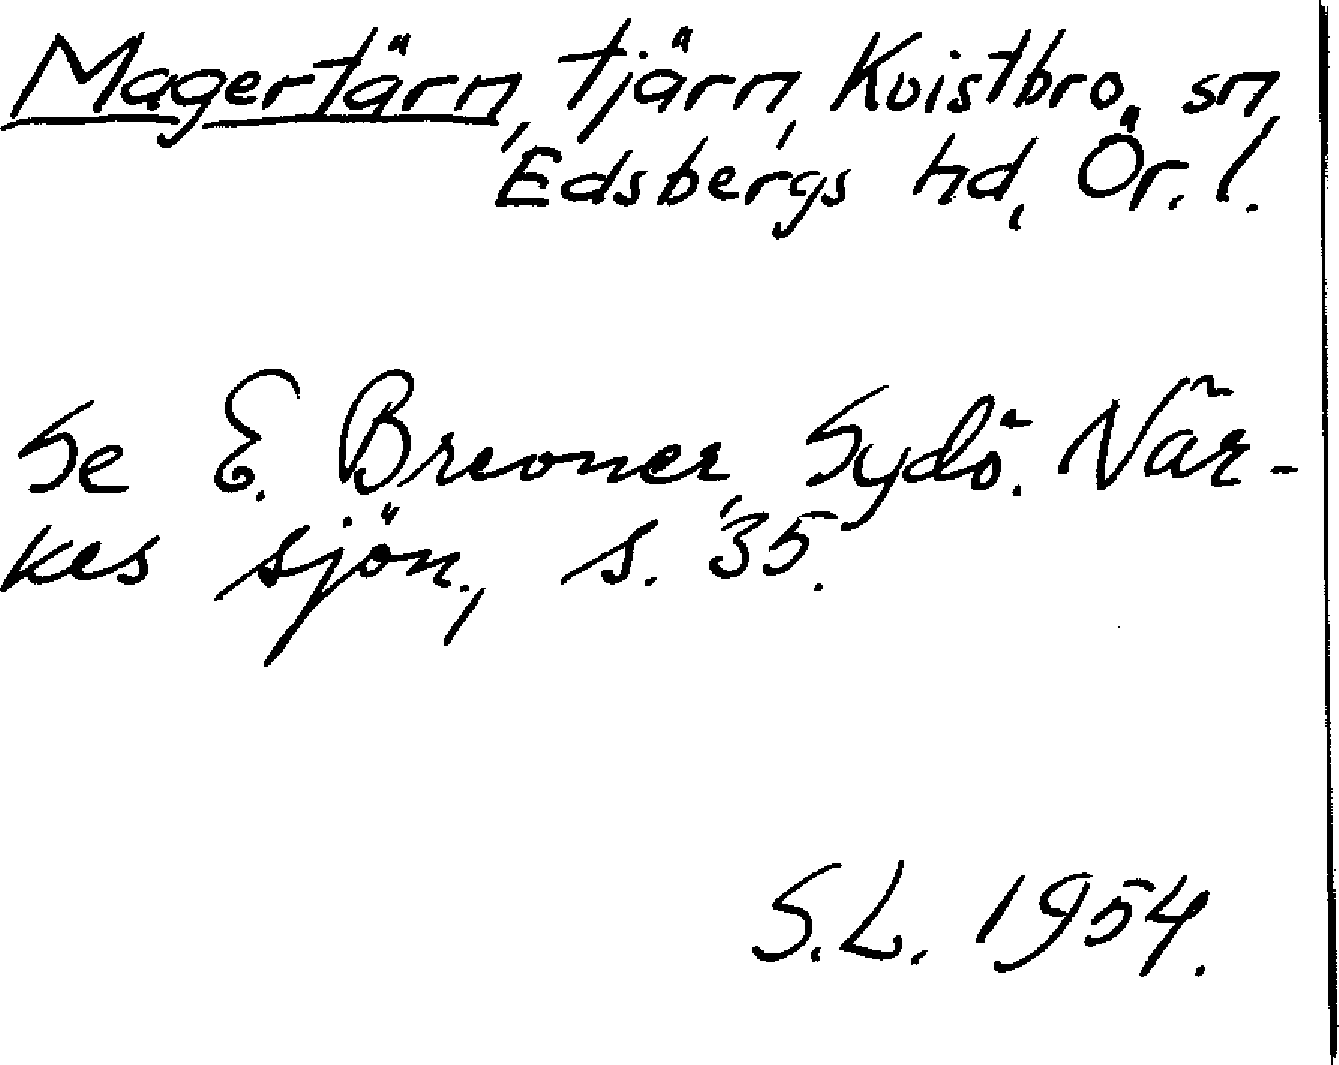 Magertärn, tjärn, Kvistbro sn,
Edsbergs hd, Ör. l.
Se E. Brevner, Sydö. När-
kes sjön., s. 35.
S.L. 1954.